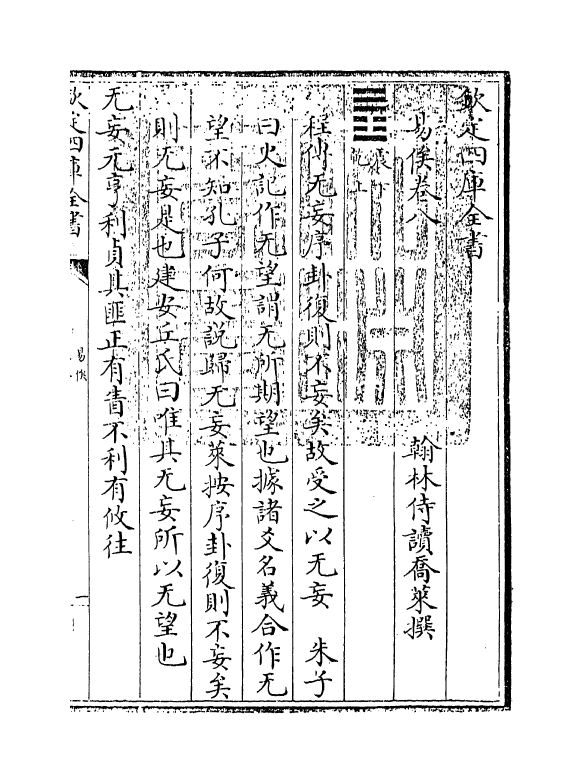 欽定四庫全書
易俟卷八　翰林侍讀喬萊撰
䷘震下乾上
程傳无妄序卦復則不妄矣故受之以无妄　朱子
曰史記作无望謂无所期望也據諸爻名義合作无
望不知孔子何故說歸无妄萊按序卦復則不妄矣
則无妄是也建安丘氏曰唯其无妄所以无望也
无妄元亨利貞其匪正有眚不利有攸往
欽定四庫全書
易俟
一